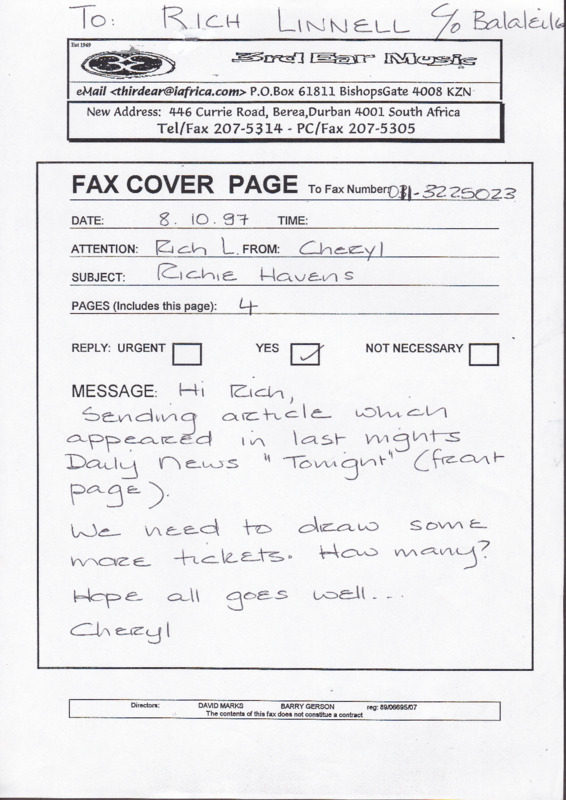 To: RICH LINNELL c/o Balaleika
Est 1969
3rd Ear Music
eMail <thirdear@iafrica.com> P.O.Box 61811 BishopsGate 4008 KZN
New Address: 446 Currie Road, Berea,Durban 4001 South Africa
Tel/Fax 207-5314 - PC/Fax 207-5305
FAX COVER PAGE To Fax Number: 031-3225023
DATE: 8.10.97 TIME:
ATTENTION: Rich L. FROM: Cheryl
SUBJECT: Richie Havens
PAGES (Includes this page): 4
REPLY: URGENT YES ✓ NOT NECESSARY
MESSAGE: Hi Rich,
Sending article which
appeared in last nights
Daily News "Tonight" (front
page).
We need to draw some
more tickets. How many?
Hope all goes well...
Cheryl
Directors: DAVID MARKS BARRY GERSON reg: 89/06695/07
The contents of this fax does not constitute a contract